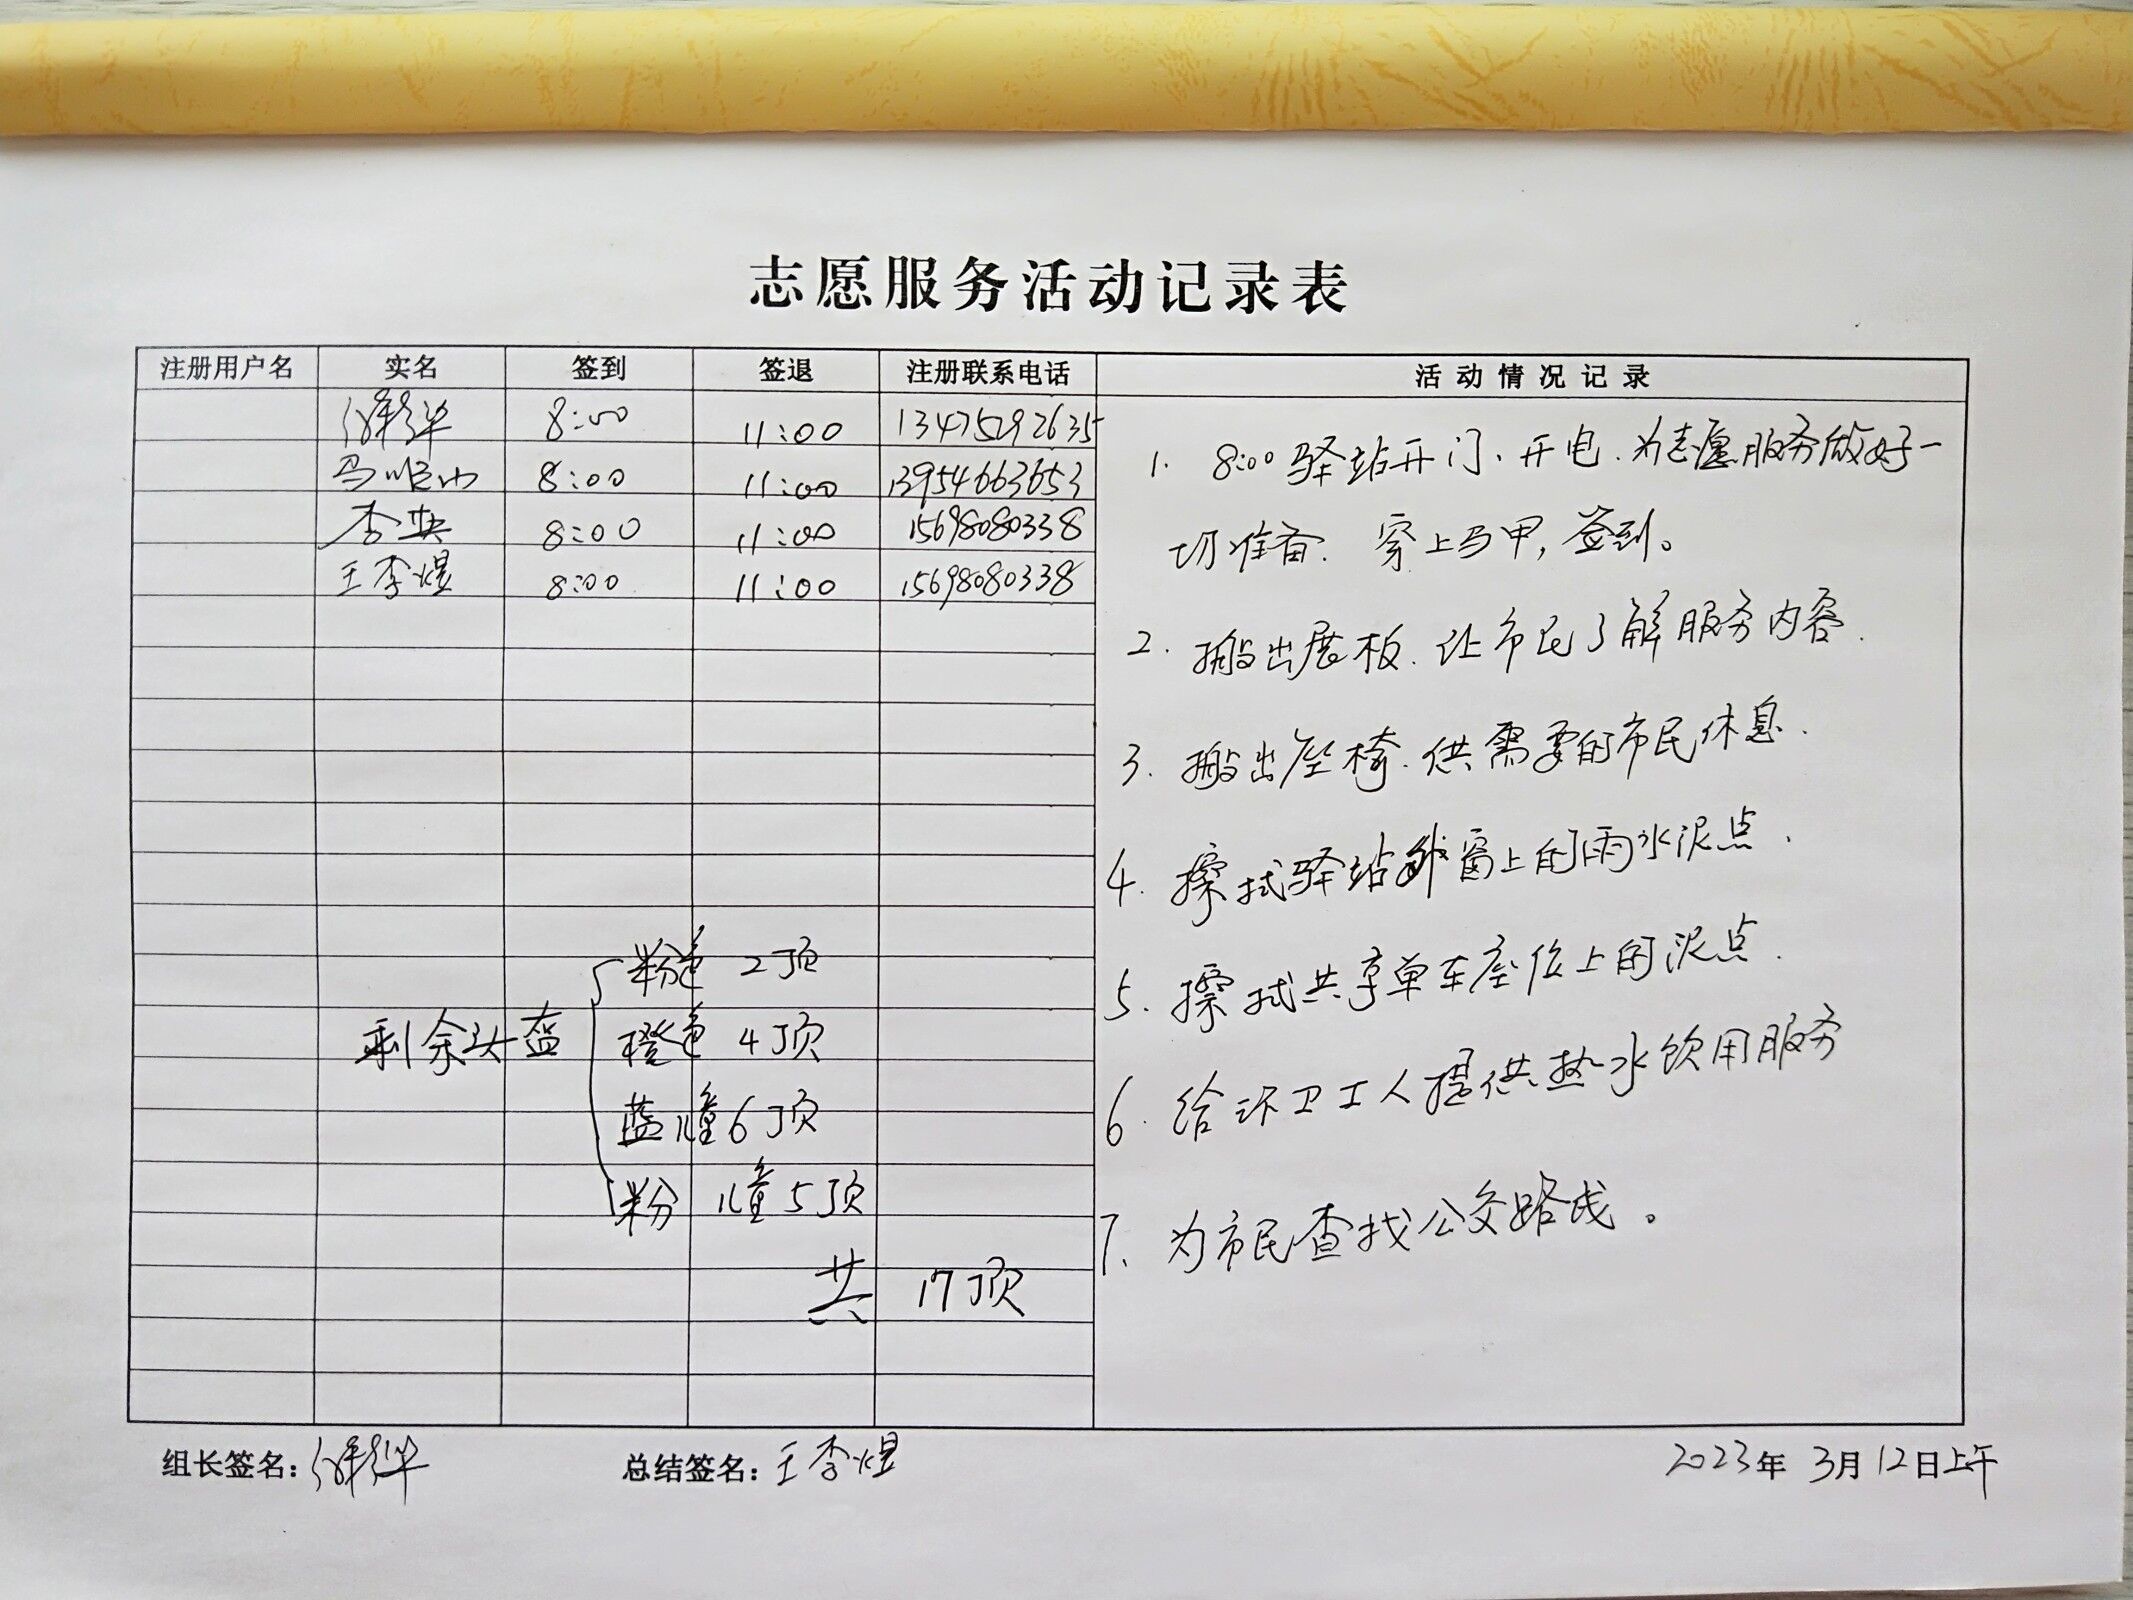 志愿服务活动记录表
注册用户名 实名 签到 签退 注册联系电话 活动情况记录
8:00 11:00 13475292635
8:00 11:00 13954663653
李典 8:00 11:00 15698080338
王李煜 8:00 11:00 15698080338
1. 8:00驿站开门、开电、为志愿服务做好一
切准备. 穿上马甲,签到。
2. 搬出展板.让市民了解服务内容.
3. 搬出座椅.供需要的市民休息.
4. 擦拭驿站外窗上的雨水泥点.
5. 擦拭共享单车座位上的泥点.
6. 给环卫工人提供热水饮用服务
7、为市民查找公交路线。
剩余头盔
粉色 2顶
橙色 4顶
蓝儿童6顶
粉 儿童5顶
共 17顶
组长签名: 总结签名:王李煜 2023年 3月12日上午